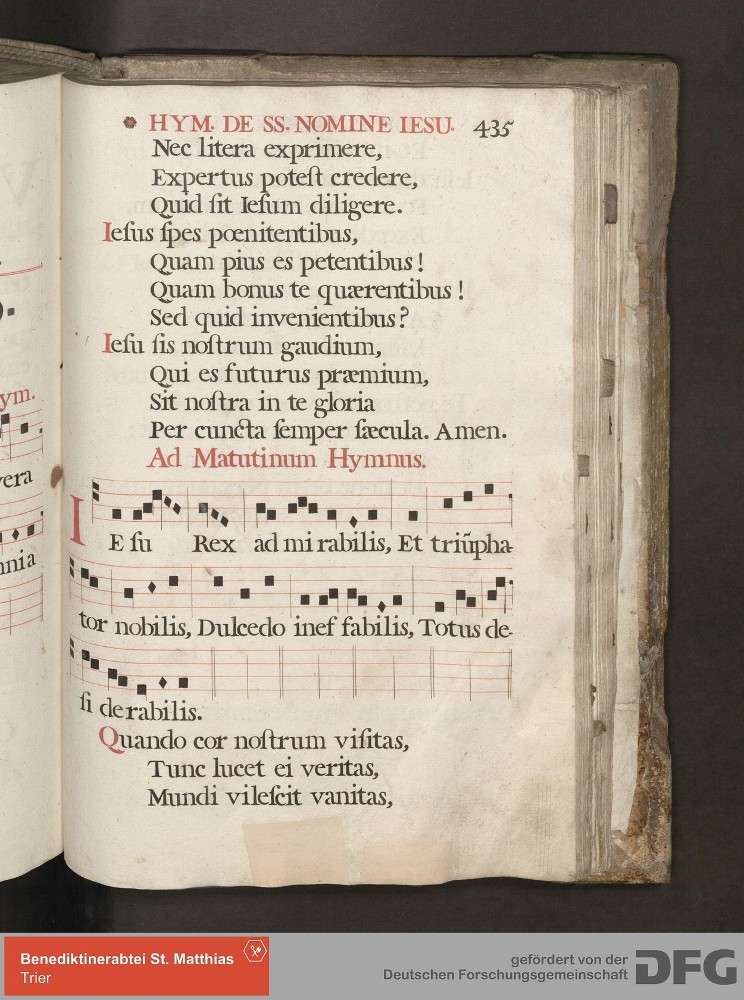 HYM. DE SS. NOMINE IESU. 435
Nec litera exprimere,
Expertus poteſt credere,
Quid ſit Ieſum diligere.
Ieſus ſpes pœnitentibus,
Quam pius es petentibus!
Quam bonus te quærentibus!
Sed quid invenientibus?
Ieſu ſis noſtrum gaudium,
Qui es futurus præmium,
Sit noſtra in te gloria
Per cuncta ſemper ſæcula. Amen.
Ad Matutinum Hymnus.
IE ſu Rex ad mi rabilis, Et triũpha-
tor nobilis, Dulcedo inef fabilis, Totus de-
ſi derabilis.
Quando cor noſtrum viſitas,
Tunc lucet ei veritas,
Mundi vileſcit vanitas,
ym.
vera
nnia
Benediktinerabtei St. Matthias
Trier
gefördert von der
Deutschen Forschungsgemeinschaft DFG